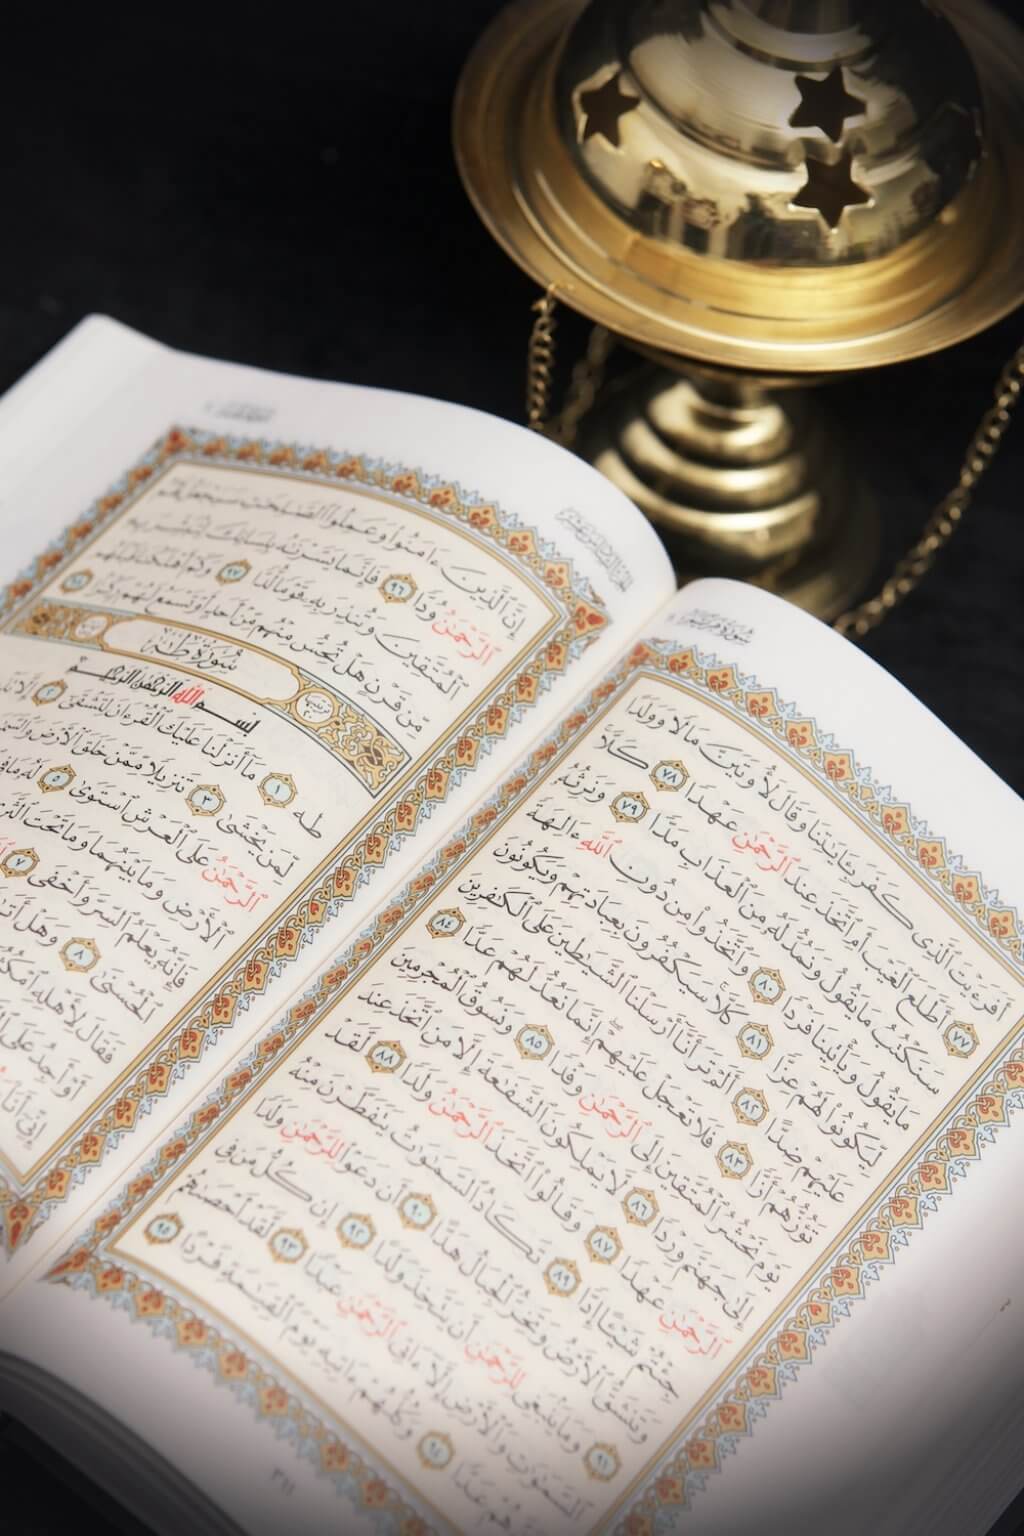 سُورَةُ مَرْيَمَ
أَفَرَءَيْتَ ٱلَّذِى كَفَرَ بِـَٔايَـٰتِنَا وَقَالَ لَأُوتَيَنَّ مَالًا وَوَلَدًا
٧٧ أَطَّلَعَ ٱلْغَيْبَ أَمِ ٱتَّخَذَ عِندَ ٱلرَّحْمَـٰنِ عَهْدًا ٧٨ كَلَّا
سَنَكْتُبُ مَا يَقُولُ وَنَمُدُّ لَهُۥ مِنَ ٱلْعَذَابِ مَدًّا ٧٩ وَنَرِثُهُۥ
مَا يَقُولُ وَيَأْتِينَا فَرْدًا ٨٠ وَٱتَّخَذُوا۟ مِن دُونِ ٱللَّهِ ءَالِهَةً
لِّيَكُونُوا۟ لَهُمْ عِزًّا ٨١ كَلَّا سَيَكْفُرُونَ بِعِبَادَتِهِمْ وَيَكُونُونَ
عَلَيْهِمْ ضِدًّا ٨٢ أَلَمْ تَرَ أَنَّآ أَرْسَلْنَا ٱلشَّيَـٰطِينَ عَلَى ٱلْكَـٰفِرِينَ
تَؤُزُّهُمْ أَزًّا ٨٣ فَلَا تَعْجَلْ عَلَيْهِمْ إِنَّمَا نَعُدُّ لَهُمْ عَدًّا ٨٤
يَوْمَ نَحْشُرُ ٱلْمُتَّقِينَ إِلَى ٱلرَّحْمَـٰنِ وَفْدًا ٨٥ وَنَسُوقُ ٱلْمُجْرِمِينَ
إِلَىٰ جَهَنَّمَ وِرْدًا ٨٦ لَّا يَمْلِكُونَ ٱلشَّفَـٰعَةَ إِلَّا مَنِ ٱتَّخَذَ عِندَ
ٱلرَّحْمَـٰنِ عَهْدًا ٨٧ وَقَالُوا۟ ٱتَّخَذَ ٱلرَّحْمَـٰنُ وَلَدًا ٨٨ لَّقَدْ
جِئْتُمْ شَيْـًٔا إِدًّا ٨٩ تَكَادُ ٱلسَّمَـٰوَٰتُ يَتَفَطَّرْنَ مِنْهُ
وَتَنشَقُّ ٱلْأَرْضُ وَتَخِرُّ ٱلْجِبَالُ هَدًّا ٩٠ أَن دَعَوْا۟ لِلرَّحْمَـٰنِ وَلَدًا
٩١ وَمَا يَنۢبَغِى لِلرَّحْمَـٰنِ أَن يَتَّخِذَ وَلَدًا ٩٢ إِن كُلُّ مَن فِى
ٱلسَّمَـٰوَٰتِ وَٱلْأَرْضِ إِلَّآ ءَاتِى ٱلرَّحْمَـٰنِ عَبْدًا ٩٣ لَّقَدْ أَحْصَىٰهُمْ
وَعَدَّهُمْ عَدًّا ٩٤ وَكُلُّهُمْ ءَاتِيهِ يَوْمَ ٱلْقِيَـٰمَةِ فَرْدًا ٩٥
٣١١
إِنَّ ٱلَّذِينَ ءَامَنُوا۟ وَعَمِلُوا۟ ٱلصَّـٰلِحَـٰتِ سَيَجْعَلُ لَهُمُ
ٱلرَّحْمَـٰنُ وُدًّا ٩٦ فَإِنَّمَا يَسَّرْنَـٰهُ بِلِسَانِكَ لِتُبَشِّرَ بِهِ
ٱلْمُتَّقِينَ وَتُنذِرَ بِهِۦ قَوْمًا لُّدًّا ٩٧ وَكَمْ أَهْلَكْنَا قَبْلَهُم
مِّن قَرْنٍ هَلْ تُحِسُّ مِنْهُم مِّنْ أَحَدٍ أَوْ تَسْمَعُ لَهُمْ رِكْزًۢا ٩٨
سُورَةُ طه
بِسْمِ ٱللَّهِ ٱلرَّحْمَـٰنِ ٱلرَّحِيمِ
طه ١ مَآ أَنزَلْنَا عَلَيْكَ ٱلْقُرْءَانَ لِتَشْقَىٰٓ ٢ إِلَّا
لِّمَن يَخْشَىٰ ٣ تَنزِيلًا مِّمَّنْ خَلَقَ ٱلْأَرْضَ
ٱلرَّحْمَـٰنُ عَلَى ٱلْعَرْشِ ٱسْتَوَىٰ ٥ لَهُۥ مَا
ٱلْأَرْضِ وَمَا بَيْنَهُمَا وَمَا تَحْتَ ٱلثَّرَىٰ
فَإِنَّهُۥ يَعْلَمُ ٱلسِّرَّ وَأَخْفَى ٧
ٱلْحُسْنَىٰ ٨ وَهَلْ
فَقَالَ لِأَهْلِهِ ٱمْكُثُوٓا۟
أَوْ أَجِدُ عَلَى
إِنِّىٓ أَنَا۠